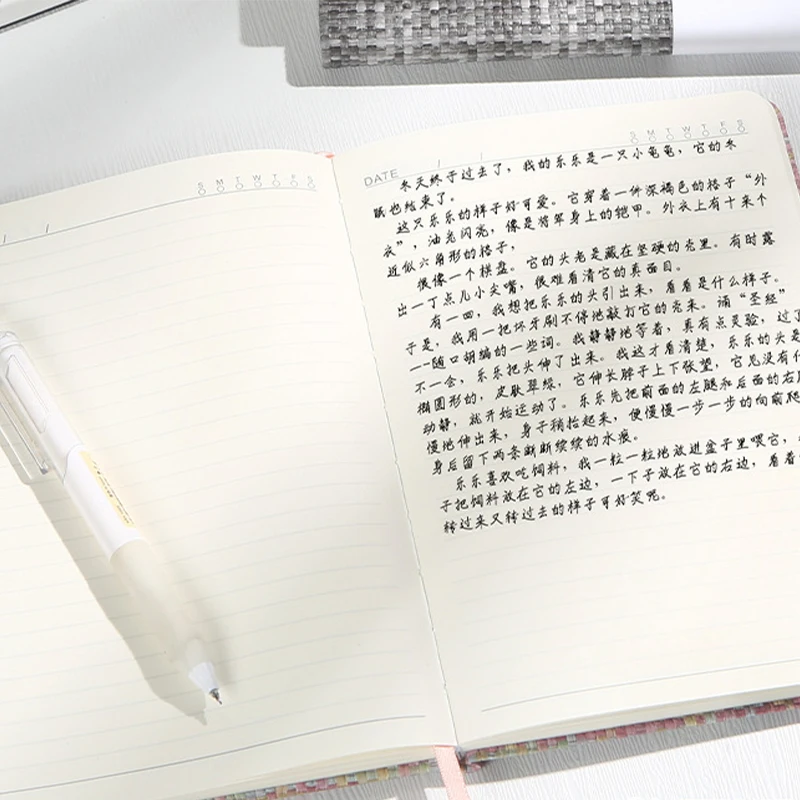 S M T W T F S
DATE / / S M T W T F S
冬天终于过去了，我的乐乐是一只小龟龟，它的冬
眠也结束了。
这只乐乐的样子好可爱。它穿着一件深褐色的格子“外
衣”，油光闪亮，像是将军身上的铠甲。外衣上有十来个
近似六角形的格子，
很像一个棋盘。它的头老是藏在坚硬的壳里。有时露
出一丁点儿小尖嘴，很难看清它的真面目。
有一回，我想把乐乐的头引出来，看看是什么样子。
于是，我用一把坏牙刷不停地敲打它的壳来。诵“圣经”
--随口胡编的一些词。我静静地等着，真有点灵验，过了
不一会，乐乐把头伸了出来。我这才看清楚，乐乐的头是
椭圆形的，皮肤翠绿，它伸长脖子上下张望，它见没有什
动静，就开始运动了。乐乐先把前面的左腿和后面的右
慢地伸出来，身子稍抬起来，便慢慢一步一步的向前爬
身后留下两条断断续续的水痕。
乐乐喜欢吃饲料，我一粒一粒地放进盆子里喂它，
子把饲料放在它的左边，一下子放在它的右边，看着
转过来又转过去的样子可好笑呢。